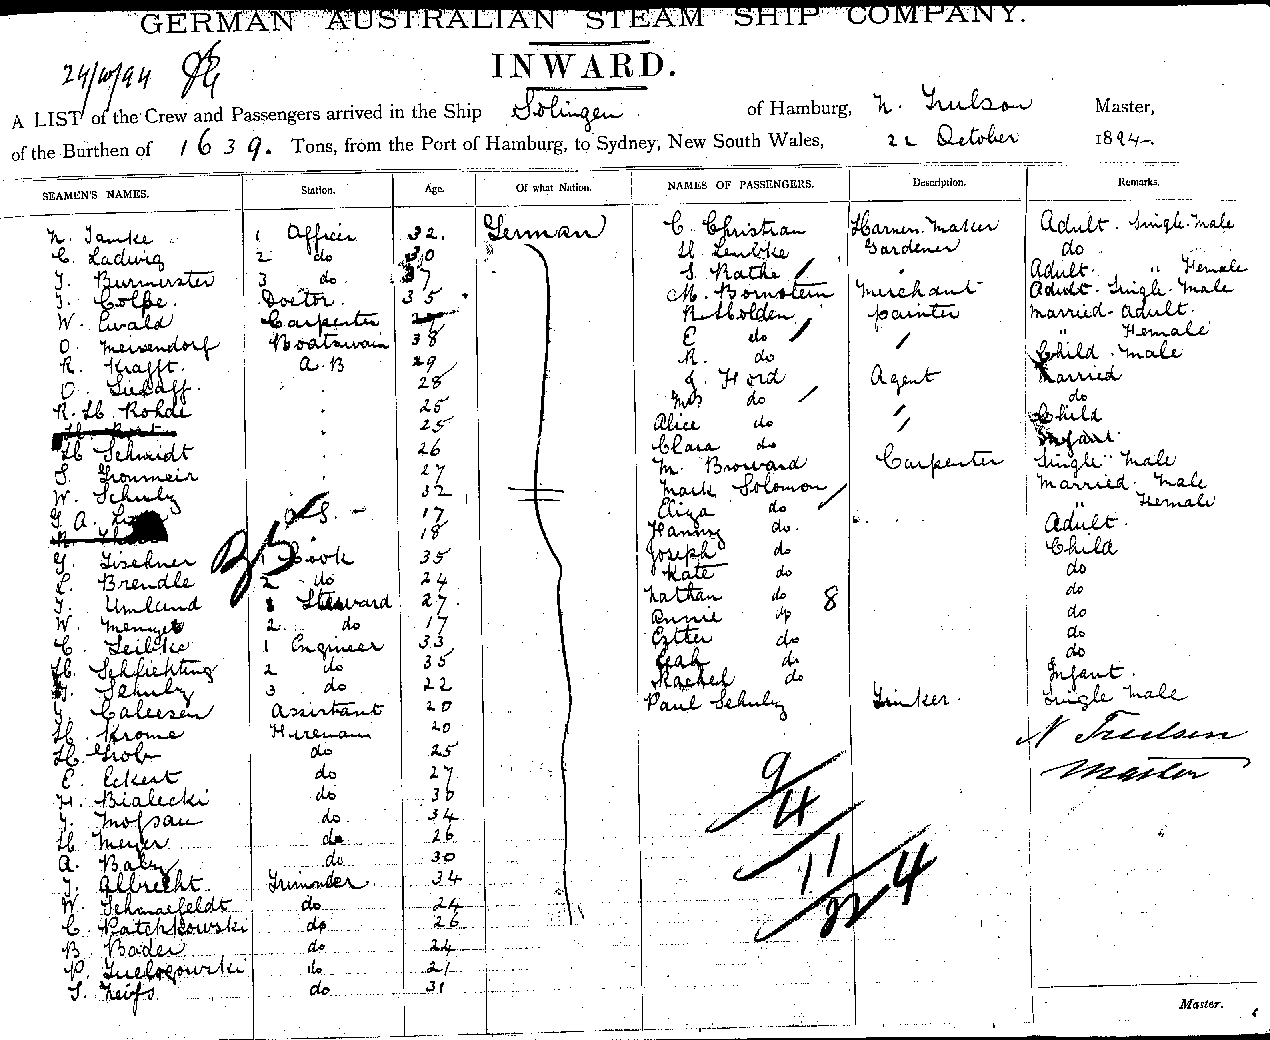 GERMAN AUSTRALIAN STEAM SHIP COMPANY.
24/10/94
INWARD.
A LIST of the Crew and Passengers arrived in the Ship Solingen of Hamburg, N. Trulson Master,
of the Burthen of 1639. Tons, from the Port of Hamburg, to Sydney, New South Wales, 22 October 1894.
SEAMEN'S NAMES. Station. Age. Of what Nation. NAMES OF PASSENGERS. Description. Remarks.
N. Tamke 1 Officer 32. German C. Christian Harnen. Maker Adult. Single. Male
C. Ladwig 2 do 30 H. Lembke Gardener do
J. Burmerster 3 do 37 S. Rathe Adult. " Female
J. Colpe. Doctor. 35 M. Bornstein Merchant Adult. Single. Male
W. Ewald Carpenter R. Holden painter Married-Adult.
O. Meivendorf Boatswain 38 E do " Female
R. Krafft. A.B 29 R. do Child. Male
O. 28 J. Hord Agent Married
R. H. Rohde 25 Mrs do do
25 Alice do Child
H. Schmidt 26 Clara do Infant.
S. Gronmeir 27 M. Broward Carpenter Single Male
W. Schulz 32 Mark Solomon Married. Male
17 Eliza do " Female
18 Hanny do. Adult.
G. Tischner 1 Cook 35 Joseph do Child
E. Brendle 2 do 24 Kate do do
J. Umlund 1 Steward 27. Nathan do 8 do
W. 2 do 17 Annie do do
C. Leibke 1 Engineer 33 Esther do do
H. Schlichting 2 do 35 Leah do do
J. Schulz 3 do 22 Rachel do Infant.
J. Caleesen Assistant 20 Paul Schulz Tinker. Single Male
H. Krome Fireman 20 N Trulsen
H. Grob do 25 Master
E. Eckert do 27
H. Bialecki do 30
J. Mofsau do 34
H. Meyer do 26
A. Baly do 30
J. Albrecht. Trimmer 34
W. Schmaefeldt do 24
C. Patchkowski do 26
B. Bader do 24
P. do 21
S. Neifs do 31
9/4
11
22/4
Master.